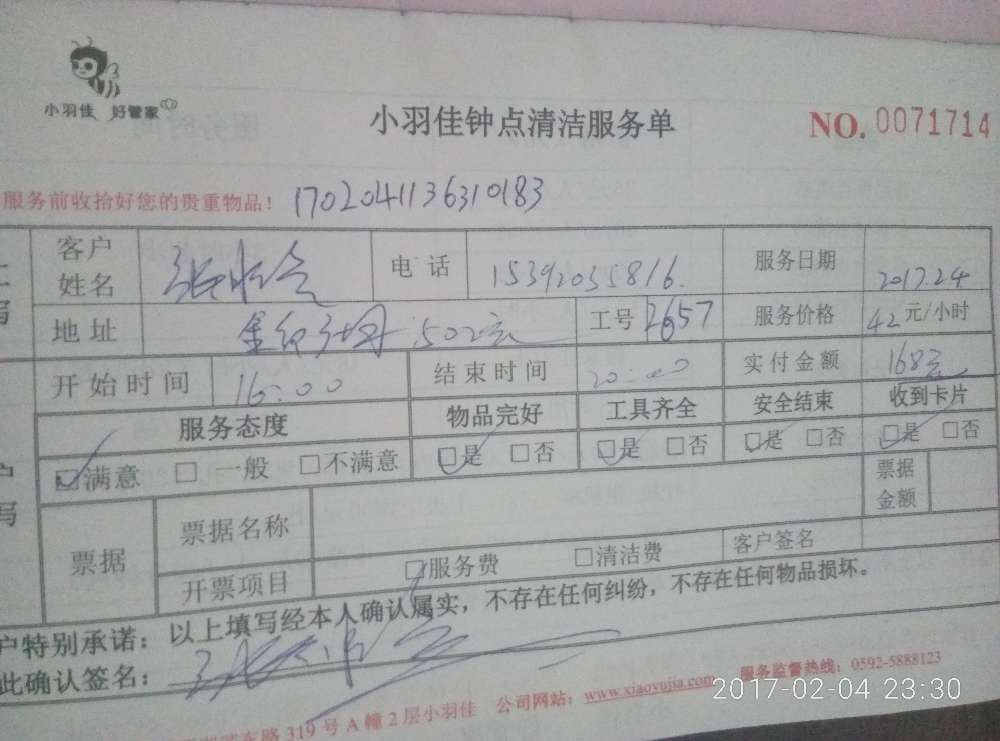 小羽佳 好管家
小羽佳钟点清洁服务单
NO. 0071714
服务前收拾好您的贵重物品!
1702041136310183
客户姓名 电话 15392035816. 服务日期 2017.2.4
地址 502室 工号 2657 服务价格 42元/小时
开始时间 16:00 结束时间 20:00 实付金额 168元
服务态度 物品完好 工具齐全 安全结束 收到卡片
满意 □一般 □不满意 是 □否 是 □否 是 □否 是 □否
票据 票据名称 票据金额
开票项目 服务费 □清洁费 客户签名
户特别承诺：以上填写经本人确认属实，不存在任何纠纷，不存在任何物品损坏。
此确认签名：
东路319号A幢2层小羽佳 公司网站：www.xiaoyujia.com 服务监督热线：0592-5888123
2017-02-04 23:30